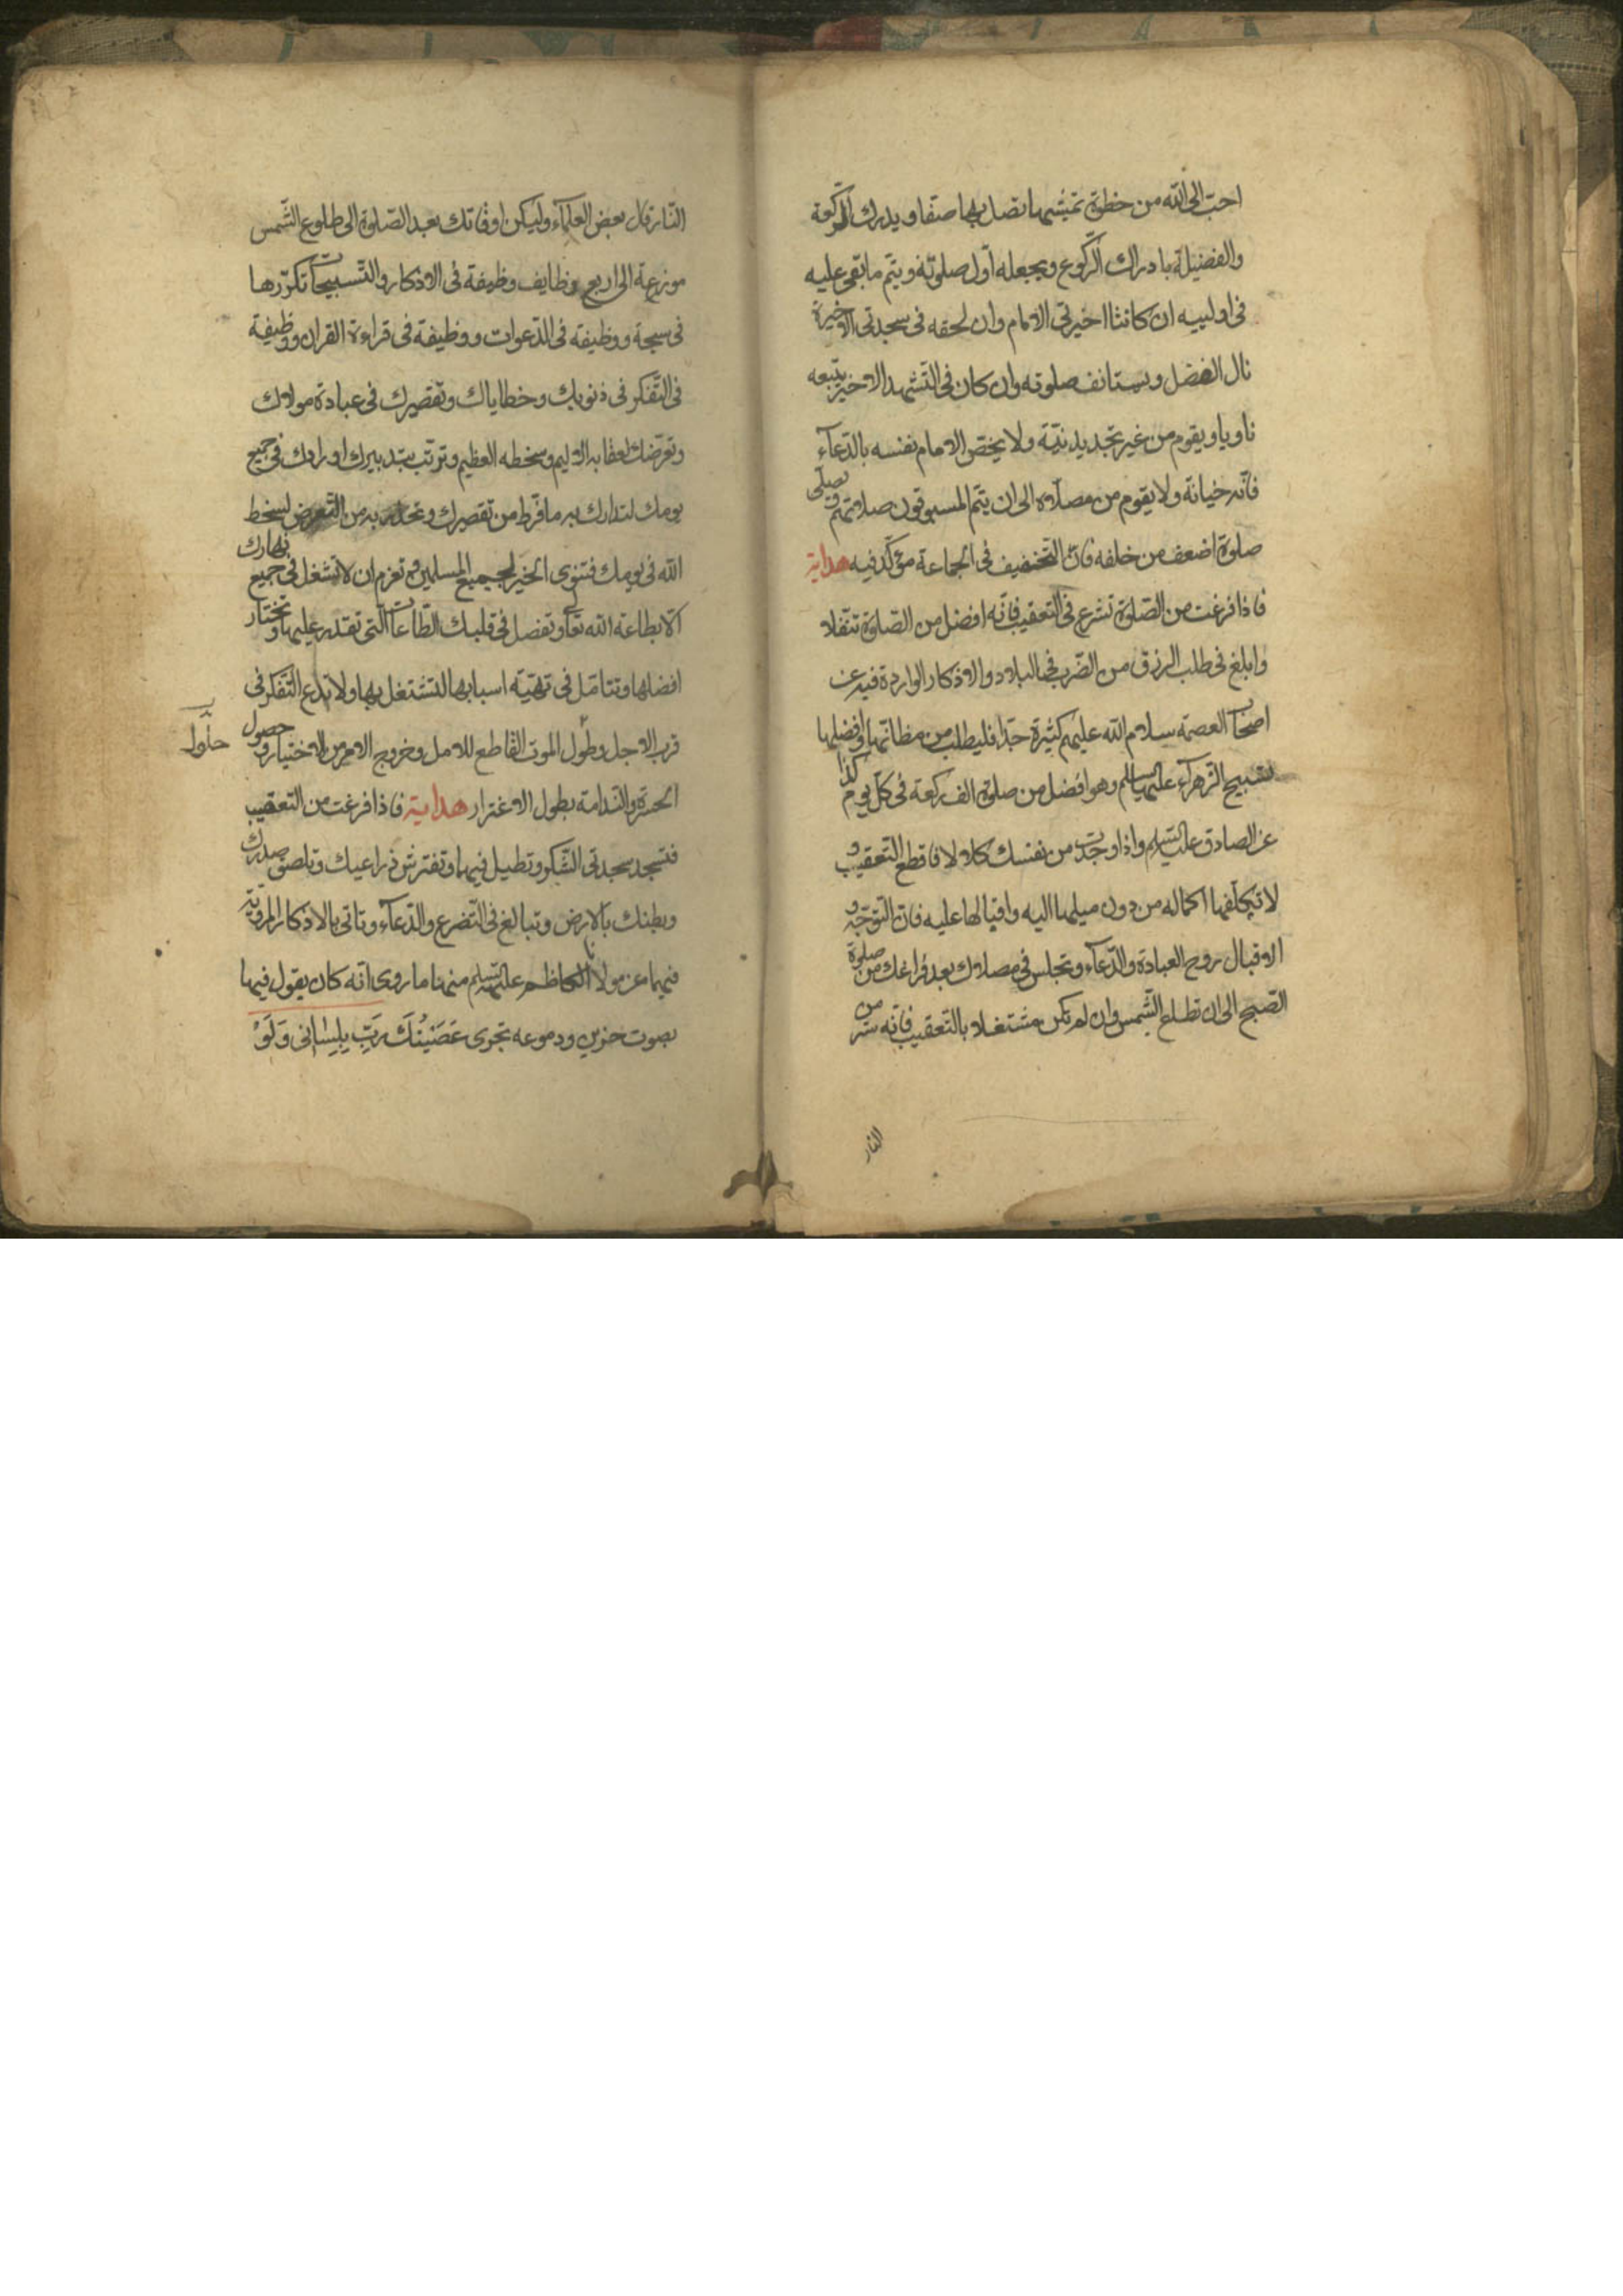 احب الى الله من خطوة تمشيها تصل بها صفا ويدرك الركعة
والفضيلة بادراك الركوع ويجعله اول صلوته ويتم ما بقى عليه
فى اولييه ان كانتا اخيرتى الامام وان لحقه فى سجدتى الاخيرة
نال الفضل ويستانف صلوته وان كان فى التشهد الاخير يتبعه
ناويا ويقوم من غير تجديد نية ولا يختص الامام نفسه بالدعاء
فانه خيانة ولا يقوم من مصلاه الى ان يتم المسبوقون صلاتهم ويصلى
صلوة اضعف من خلفه فان التخفيف فى الجماعة مؤكد فيه هداية
فاذا فرغت من الصلوة تشرع فى التعقيب فانه افضل من الصلوة تنفلا
وابلغ فى طلب الرزق من الضرب فى البلاد والاذكار الواردة فيه عن
اصحاب العصمة سلام الله عليهم كثيرة جدا فليطلب من مظانها وافضلها
تسبيح الزهراء عليها السلام وهو افضل من صلوة الف ركعة فى كل يوم كذا
عن الصادق عليه السلام واذا وجدت من نفسك كلالا فاقطع التعقيب و
لا تكلفها اكماله من دون ميلها اليه واقبالها عليه فان التوجه و
الاقبال روح العبادة والدعاء وتجلس فى مصلاك بعد فراغك من صلوة
الصبح الى ان تطلع الشمس وان لم تكن مشتغلا بالتعقيب فانه ستر من
النار
النار قال بعض العلماء وليكن اوقاتك بعد الصلوة الى طلوع الشمس
موزعة الى اربع وظايف وظيفة فى الاذكار والتسبيحات تكررها
فى سبحة ووظيفة فى الدعوات ووظيفة فى قراءة القران ووظيفة
فى التفكر فى ذنوبك وخطاياك وتقصيرك فى عبادة مولاك
وتعرضك لعقابه الاليم وسخطه العظيم وترتب بتدبيرك اورادك فى جميع
يومك لتدارك به ما فرط من تقصيرك وتحذر به من التعرض لسخط
الله فى يومك فتنوى الخير لجميع المسلمين وتعزم ان لا تشغل فى جميع نهارك
الا بطاعة الله تعالى وتفصل فى قلبك الطاعات التى تقدر عليها وتختار
افضلها وتتامل فى تهيئة اسبابها لتشتغل بها ولا تدع التفكر فى
قرب الاجل وطول الموت القاطع للامل وخروج الامر من الاختيار وحصول
حلول
الحسرة والندامة بطول الاغترار هداية فاذا فرغت من التعقيب
فتسجد سجدتى الشكر وتطيل فيهما وتفترش ذراعيك وتلصق صدرك
وبطنك بالارض وتبالغ فى التضرع والدعاء وتاتى بالاذكار المروية
فيهما عن مولانا الكاظم عليه السلم منها ما روى انه كان يقول فيها
بصوت حزين ودموعه تجرى عَصَيْتُكَ رَبِّ بِلِسَانى وَلَوْ